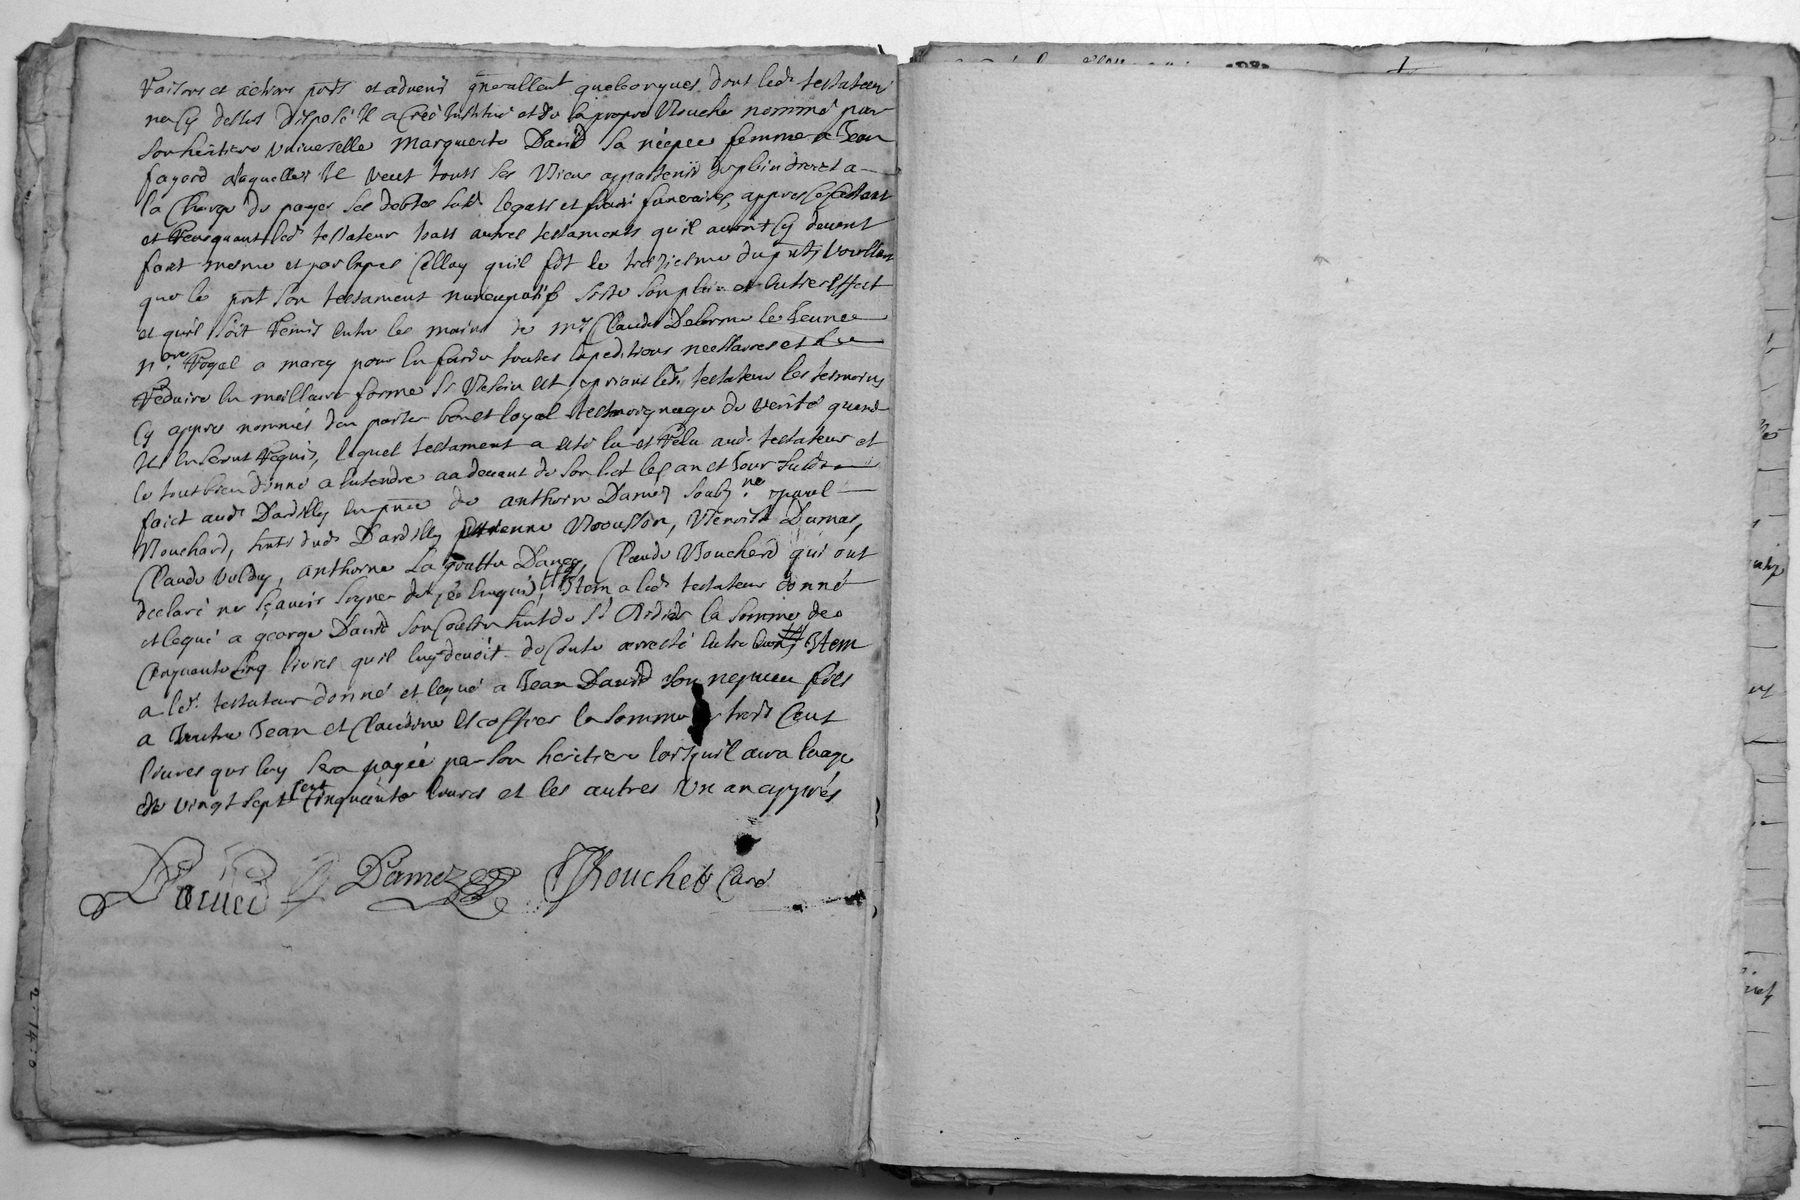 raisons et actions pnts et advenir gnerallemt quelconques dont led. testateur
na cy dessus disposé Il a créé Institué et de sa propre Bouche nommé pour
son heritiere universelle Marguerite David sa niepce femme a Jean
fayard alaquelle il veut touts ses Biens appartenir de plein droict a
la charge de payer ses debtes susd. legats et frais funeraires, appres
et Revoquant led. testateur touts autres testaments qu'il auroit cy devant
faict mesme et par expres celluy quil fit le treziesme du pnt, voullant
que le pnt son testament nuncupatif sorte son plein et entier effect
et quil soit Remis entre les mains de Mr Claude Delorme le Jeune
nore Royal a marcy pour en faire toutes expeditions necessaires et le
Reduire en meilleure forme si Besoin est, priant led. testateur les tesmoins
cy appres nommés den porter bon et loyal tesmoignage de verité quand
Ils en seront Requis, lequel testament a esté lu et Relu aud. testateur et
le tout bien donné a entendre au devant de son lict les an et Jour susd.
faict aud. Dardilly en pnce de anthoine Damez soubz.ne paul
Bouchard, hants dud. Dardilly estienne Brousson, Benoist Dumas,
Claude , anthoine La goutte Dancy, Claude Bouchard qui ont
declaré ne sçavoir signer de ce enquis, Item a led. testateur donné
et legué a george David son hant de St Didier la somme de
Cinquante cinq livres quil luy devoit de conte arresté entre eux, Item
a led. testateur donné et legué a Jean David son nepueu fils
a autre Jean et Claudine Escoffier la somme de trois Cent
livres que luy sera payée par son heritiere lorsquil aura laage
de vingt sept Cent Cinquante livres et les autres un an apprés
David Damez Bouchet Curé
2. 14. 0